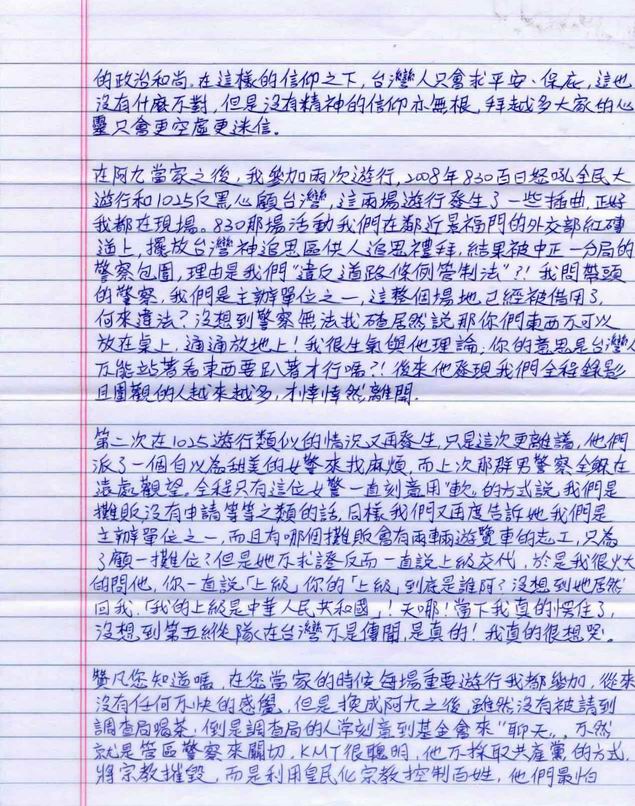 的政治和尚。在這樣的信仰之下，台灣人只會求平安、保庇，這也
沒有什麼不對，但是沒有精神的信仰亦無根，拜越多大家的心
靈只會更空虛更迷信。
在阿九當家之後，我參加兩次遊行，2008年830百日怒吼全民大
遊行和1025反黑心顧台灣，這兩場遊行發生了一些插曲，正好
我都在現場。830那場活動我們在鄰近景福門的外交部紅磚
道上，擺放台灣神追思區供人追思禮拜，結果被中正一分局的
警察包圍，理由是我們"違反道路條例管制法"?!我問帶頭
的警察，我們是主辦單位之一，這整個場地已經被借用了，
何來違法？沒想到警察無法找碴居然說那你們東西不可以
放在桌上，通通放地上！我很生氣與他理論：你的意思是台灣人
不能站著看東西要趴著才行嗎?!後來他發現我們全程錄影
且圍觀的人越來越多，才悻悻然離開.
第二次在1025遊行類似的情況又再發生，只是這次更離譜，他們
派了一個自以為甜美的女警來找麻煩，而上次那群男警察全躲在
遠處觀望。全程只有這位女警一直刻意用"軟"的方式說我們是
攤販沒有申請等等之類的話，同樣我們又再度告訴她我們是
主辦單位之一，而且有哪個攤販會有兩輛遊覽車的志工，只為
了顧一攤位？但是她不求證反而一直說上級交代，於是我很火大
的問他，你一直說「上級」你的「上級」到底是誰阿？沒想到她居然
回我，「我的上級是中華人民共和國」！天哪！當下我真的愣住了，
沒想到第五縱隊在台灣不是傳聞，是真的！我真的很想哭。
贊凡您知道嗎，在您當家的時候每場重要遊行我都參加，從來
沒有任何不快的感覺，但是換成阿九之後，雖然沒有被請到
調查局喝茶，倒是調查局的人常刻意到基金會來"聊天"，不然
就是管區警察來關切，KMT很聰明，他不採取共產黨的方式，
將宗教摧毀，而是利用皇民化宗教控制百姓，他們最怕